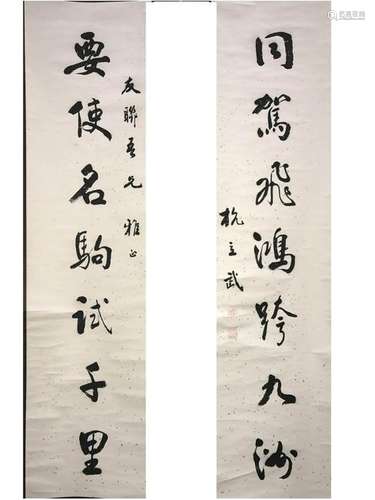 友聯吾兄 雅正
要使名駒試千里
同駕飛鴻跨九洲
杭立武